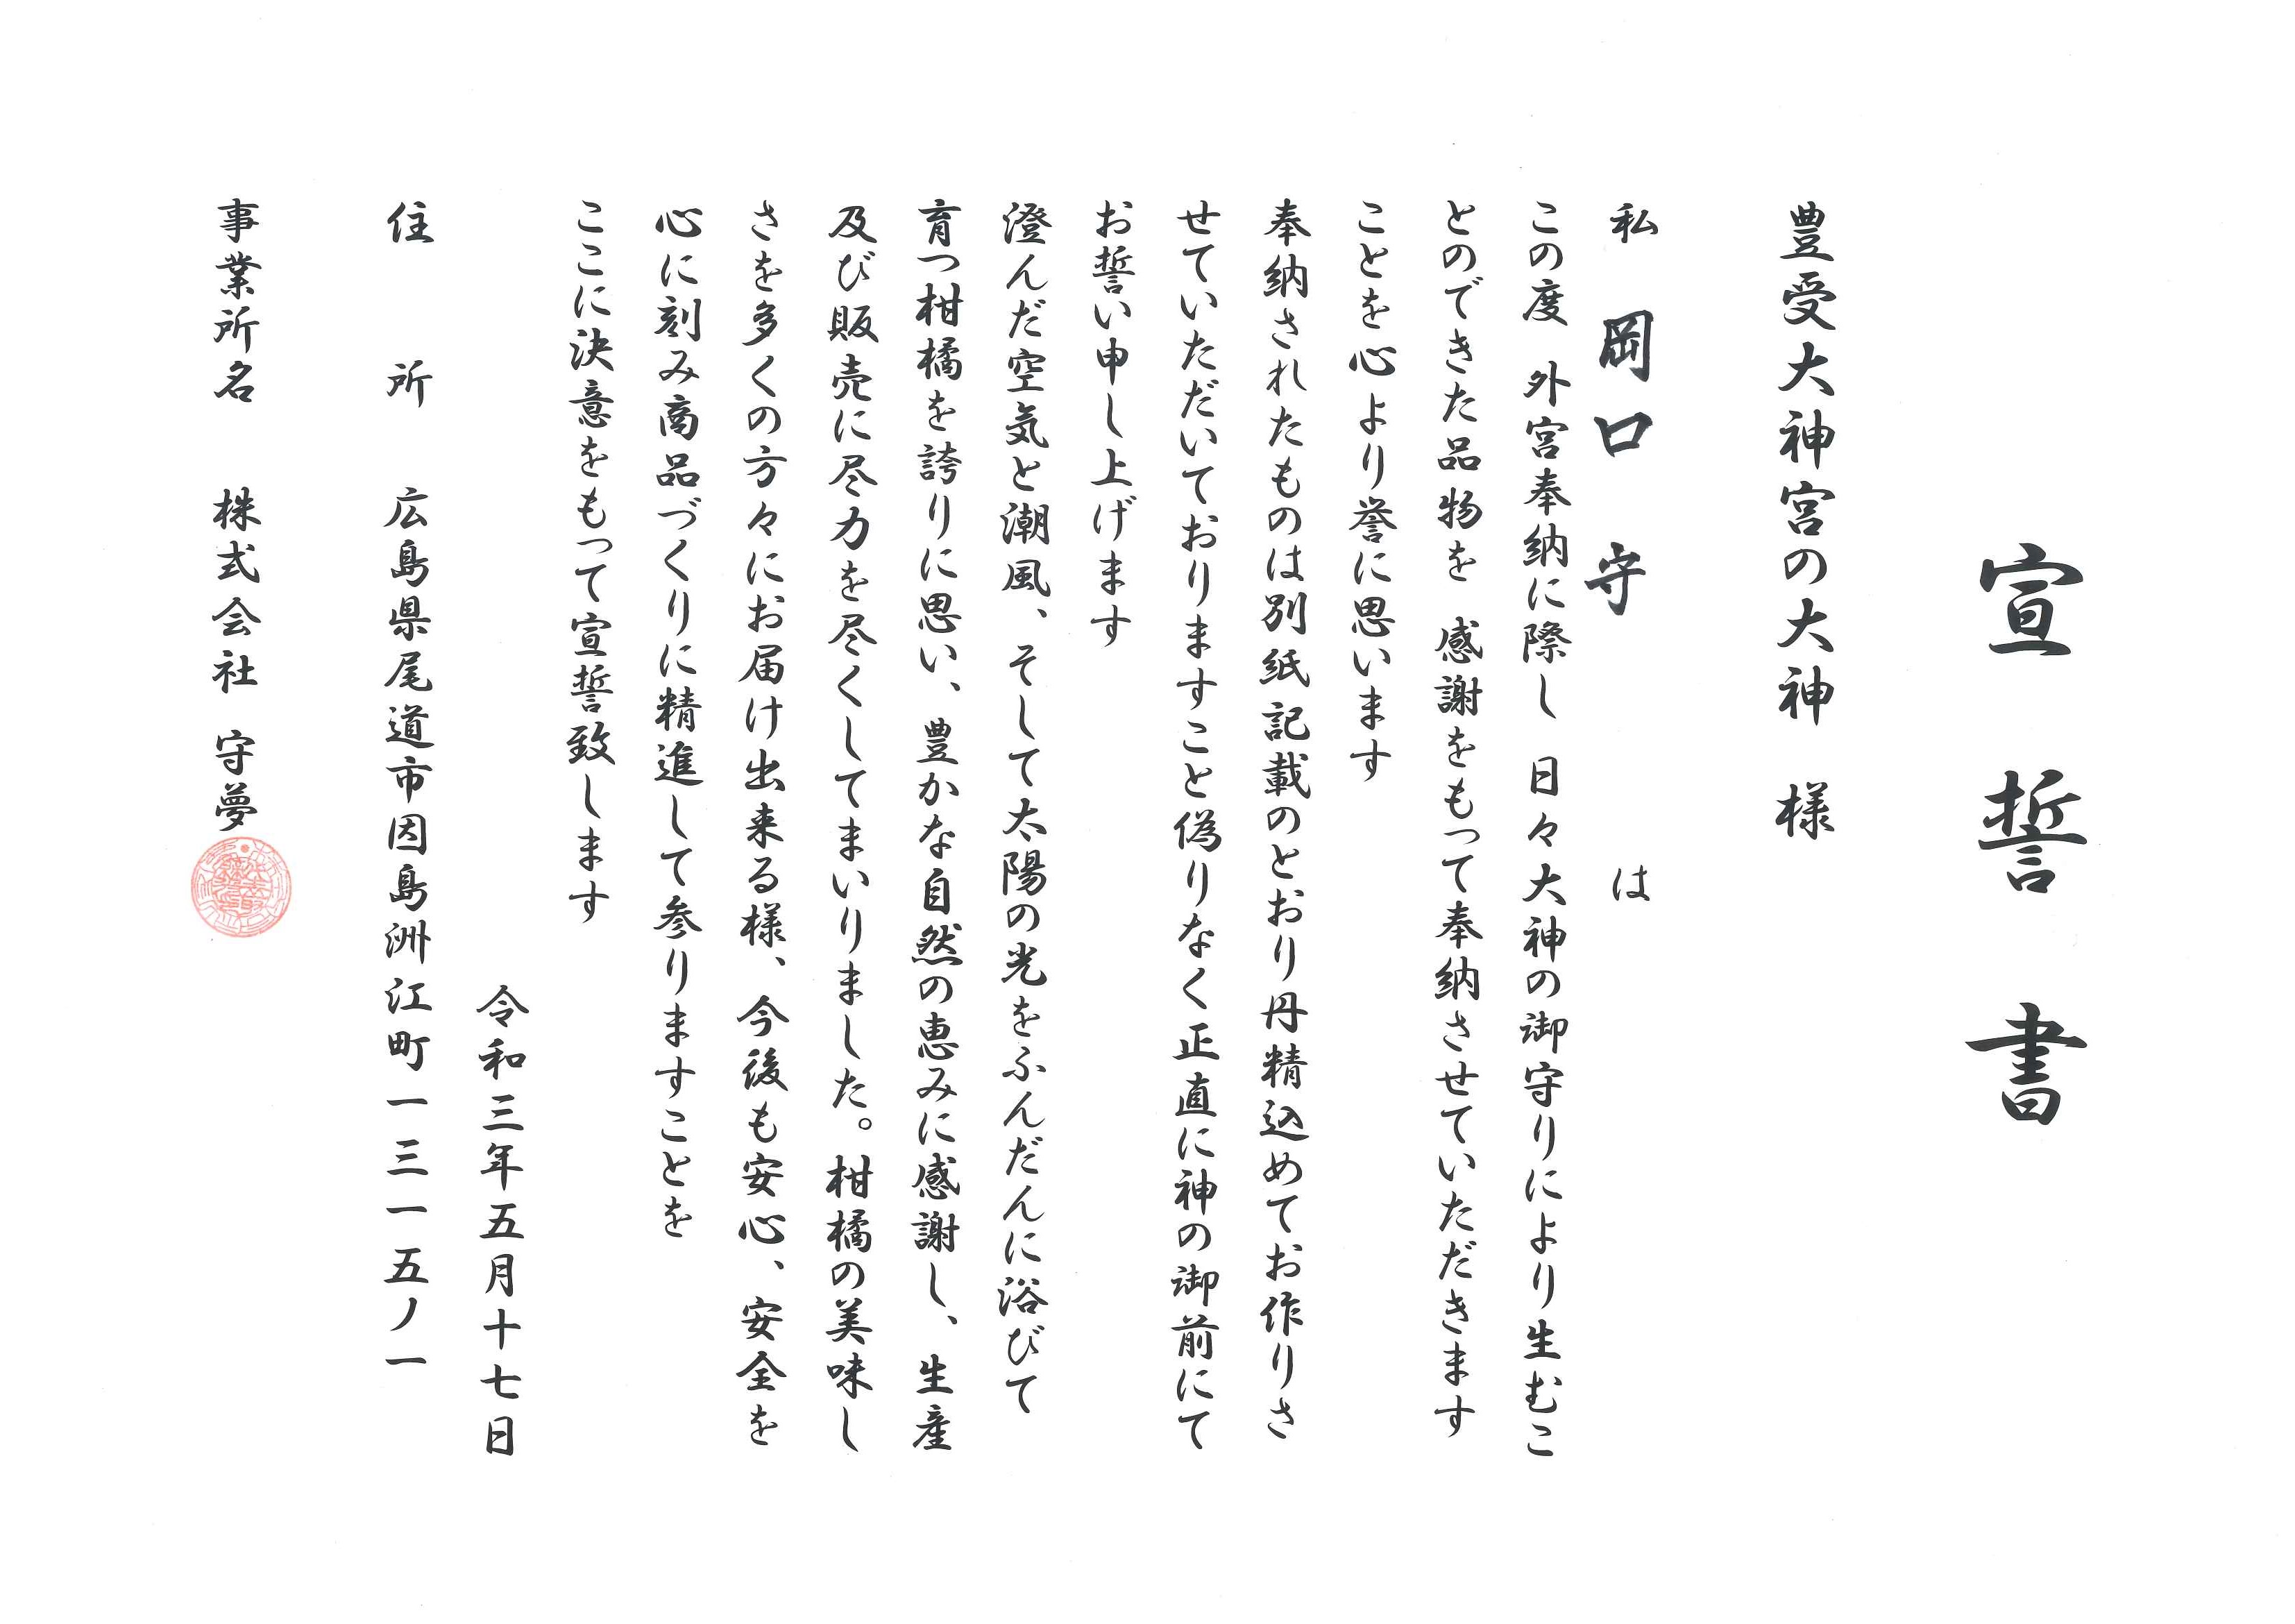 宣誓書
豊受大神宮の大神　様
私　岡口　守　は
この度　外宮奉納に際し　日々大神の御守りにより生むこ
とのできた品物を　感謝をもって奉納させていただきます
ことを心より誉に思います
奉納されたものは別紙記載のとおり丹精込めてお作りさ
せていただいておりますこと偽りなく正直に神の御前にて
お誓い申し上げます
澄んだ空気と潮風、そして太陽の光をふんだんに浴びて
育つ柑橘を誇りに思い、豊かな自然の恵みに感謝し、生産
及び販売に尽力を尽くしてまいりました。柑橘の美味し
さを多くの方々にお届け出来る様、今後も安心、安全を
心に刻み商品づくりに精進して参りますことを
ここに決意をもって宣誓致します
令和三年五月十七日
住　所　広島県尾道市因島洲江町一三一五ノ一
事業所名　株式会社　守夢